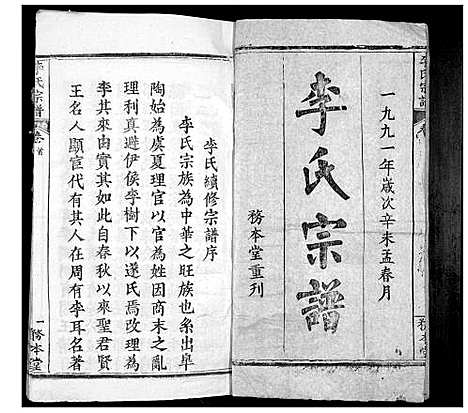 李氏宗譜
務本堂
一九九一年歲次辛未孟春月
李氏宗譜
務本堂重刊
李氏續修宗譜序
李氏宗族為中華之旺族系出皐
陶始為虞夏理官以官為姓因商末之亂
理利真避伊侯李樹下以遂氏焉改理為
李其來由實其如此自春秋以來聖君賢
王名人顯宦代有其人在周有李耳名著
李氏宗譜
卷首
一
務本堂